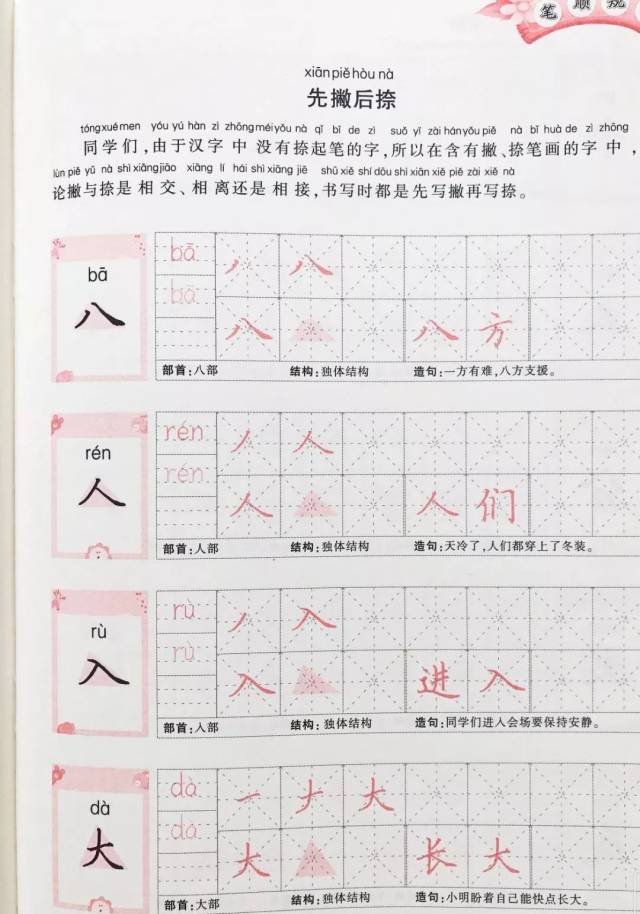 笔顺规
xiān piě hòu nà
先撇后捺
tóng xué men yóu yú hàn zì zhōng méi yǒu nà qǐ bǐ de zì suǒ yǐ zài hán yǒu piě nà bǐ huà de zì zhōng
同学们,由于汉字中没有捺起笔的字,所以在含有撇、捺笔画的字中,
lùn piě yǔ nà shì xiāng jiāo xiāng lí hái shì xiāng jiē shū xiě shí dōu shì xiān xiě piě zài xiě nà
论撇与捺是相交、相离还是相接,书写时都是先写撇再写捺。
bā
八
bā
bā
丿 八
八 八方
部首:八部 结构:独体结构 造句:一方有难,八方支援。
rén
人
rén
rén
丿 人
人 人们
部首:人部 结构:独体结构 造句:天冷了,人们都穿上了冬装。
rù
入
rù
rù
丿 入
入 进入
部首:入部 结构:独体结构 造句:同学们进入会场要保持安静。
dà
大
dà
dà
一 ナ 大
大 长大
部首:大部 结构:独体结构 造句:小明盼着自己能快点长大。